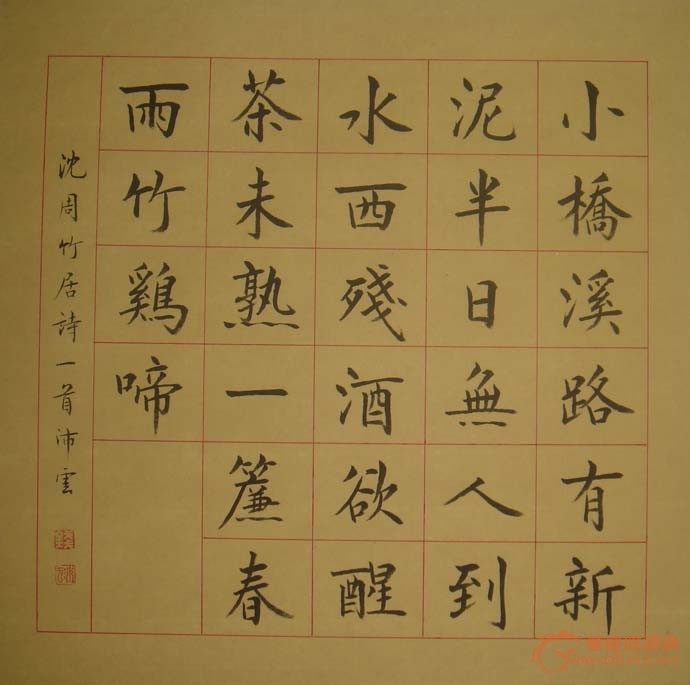 小橋溪路有新
泥半日無人到
水西殘酒欲醒
茶未熟一簾春
雨竹鷄啼
沈周竹居詩一首沛雲